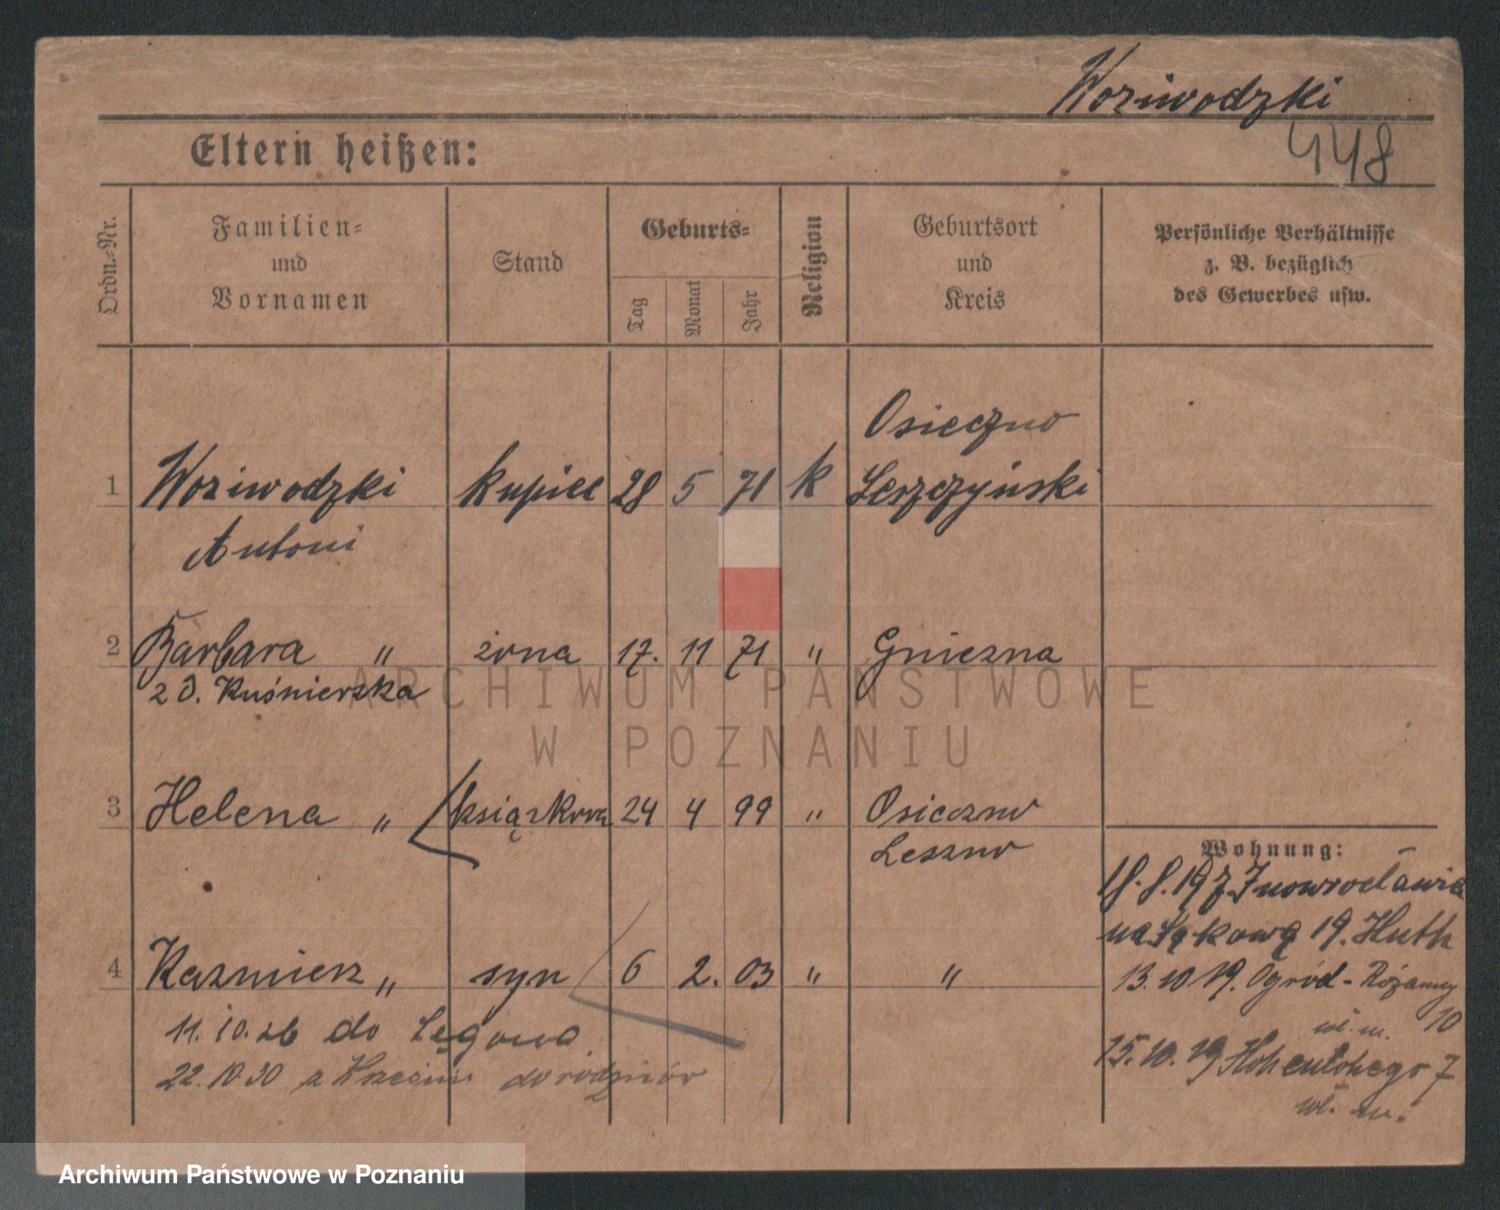 Woziwodzki
448
Eltern heißen:
Ordn.-Nr.
Familien-
und
Vornamen
Stand
Geburts-
Tag
Monat
Jahr
Religion
Geburtsort
und
Kreis
Persönliche Verhältnisse
z. B. bezüglich
des Gewerbes usw.
Osieczno
1 Woziwodzki kupiec 28 5 71 k Leszczyński
Antoni
2 Barbara " żona 17. 11 71 " Gniezna
z d. Kuśnierska
ARCHIWUM PAŃSTWOWE
W POZNANIU
3 Helena " 24 4 99 " Osieczno
Leszno
Wohnung:
18. 8. 19 z Inowrocławia
na Łąkową 19. Huth
4 Kazmierz " syn 6 2. 03 " "
13. 10 19. Ogród-Różanny
10
wł. m.
11. 10. 26 do Łęgowa
15. 10. 19 Hohenlohego 7
22. 10 30 z do rodziców
wł. m.
Archiwum Państwowe w Poznaniu